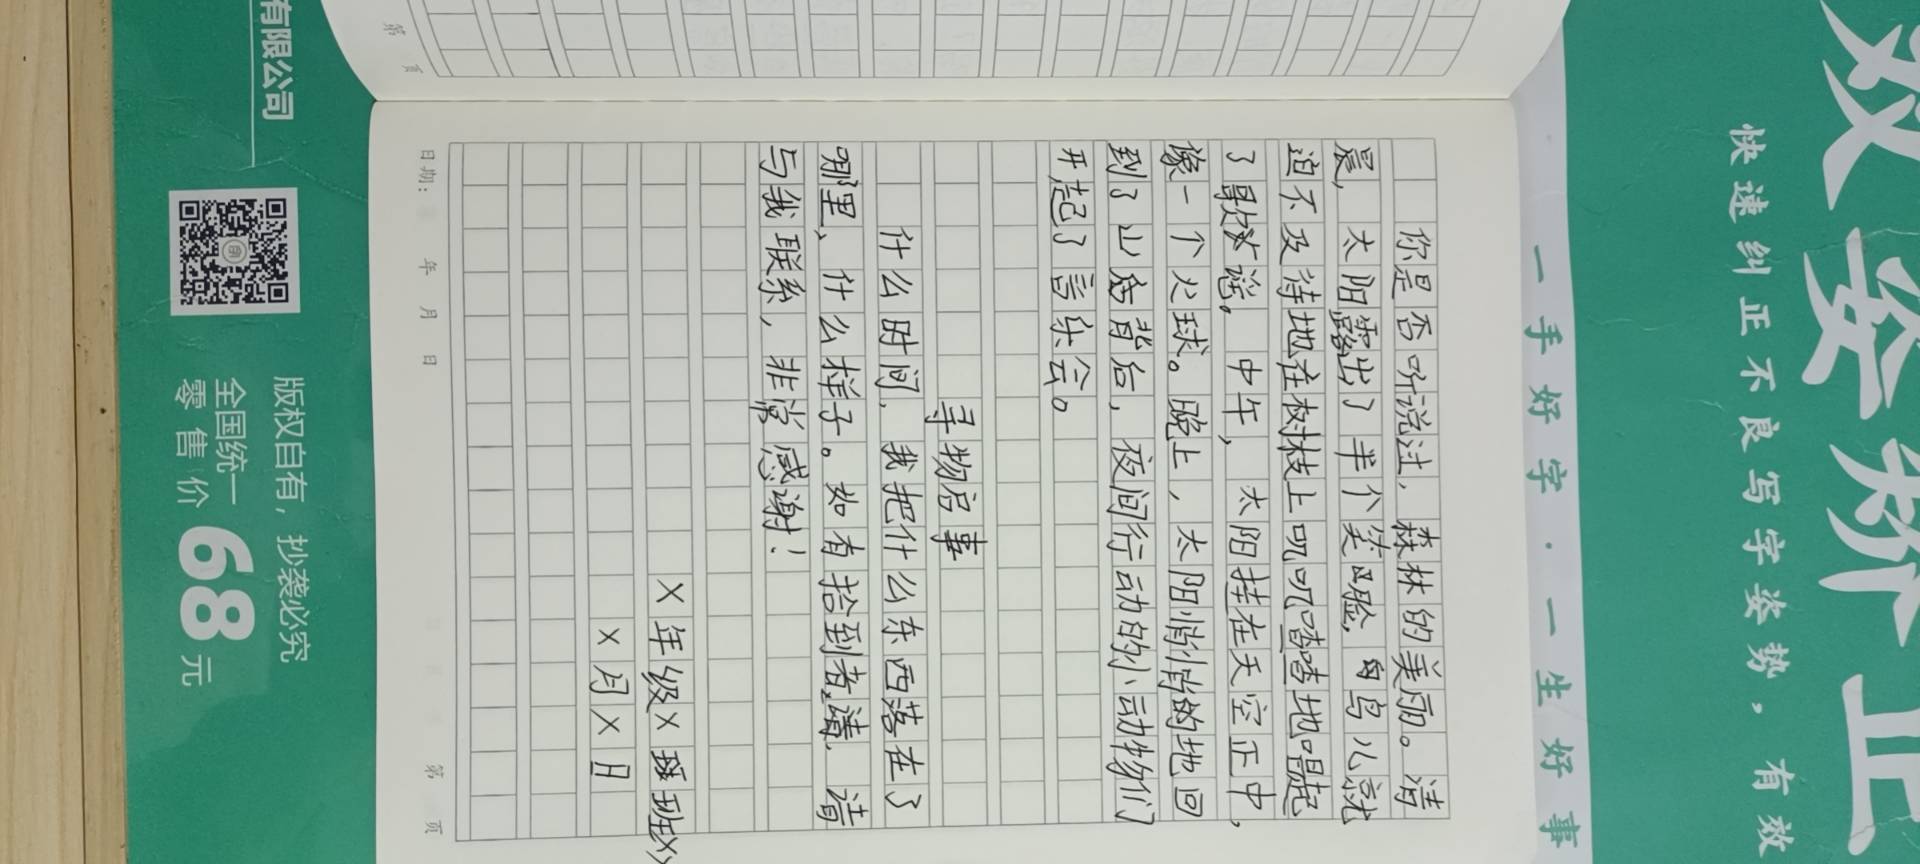 你是否听说过，森林的美丽。清
晨，太阳露出了半个笑脸，鸟儿就
迫不及待地在树枝上叽叽喳喳地唱起
了歌谣。中午，太阳挂在天空正中，
像一个火球。晚上，太阳悄悄的地回
到了山背后，夜间行动的小动物们
开起了音乐会。
寻物启事
什么时间，我把什么东西落在了
哪里、什么样子。如有拾到者，请
与我联系，非常感谢！
X年级X班XX
X月X日
日期： 年 月 日
第 页
第 页
有限公司
版权自有，抄袭必究
全国统一
零售价 68 元
一手好字·一生好事
快速纠正不良写字姿势，有效
姿 矫正